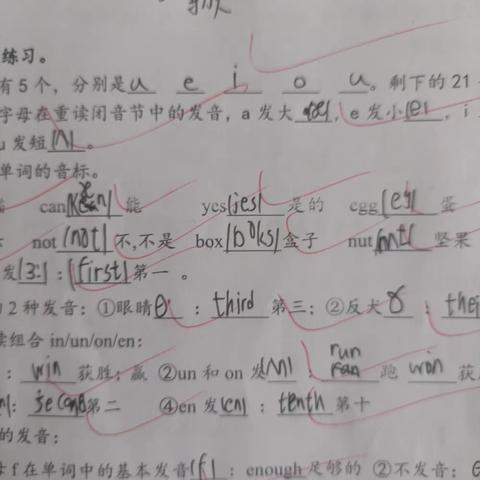 练习。
有5个，分别是 u e i o u。剩下的21
字母在重读闭音节中的发音，a发大，e发小/e/，i
u发短/ʌ/。
单词的音标。
can 能 yes/jes/ 是的 egg/eg/ 蛋
not/nɒt/不,不是 box/bɒks/盒子 nut 坚果
发/3:/：first 第一。
2种发音：①眼睛θ：third 第三；②反犬ð：
读组合 in/un/on/en：
：win 获胜；赢 ②un和on发/ʌn/：run 跑 won 获
：second第二 ④en发/en/：tenth第十
的发音：
f在单词中的基本发音/f/：enough足够的 ②不发音：